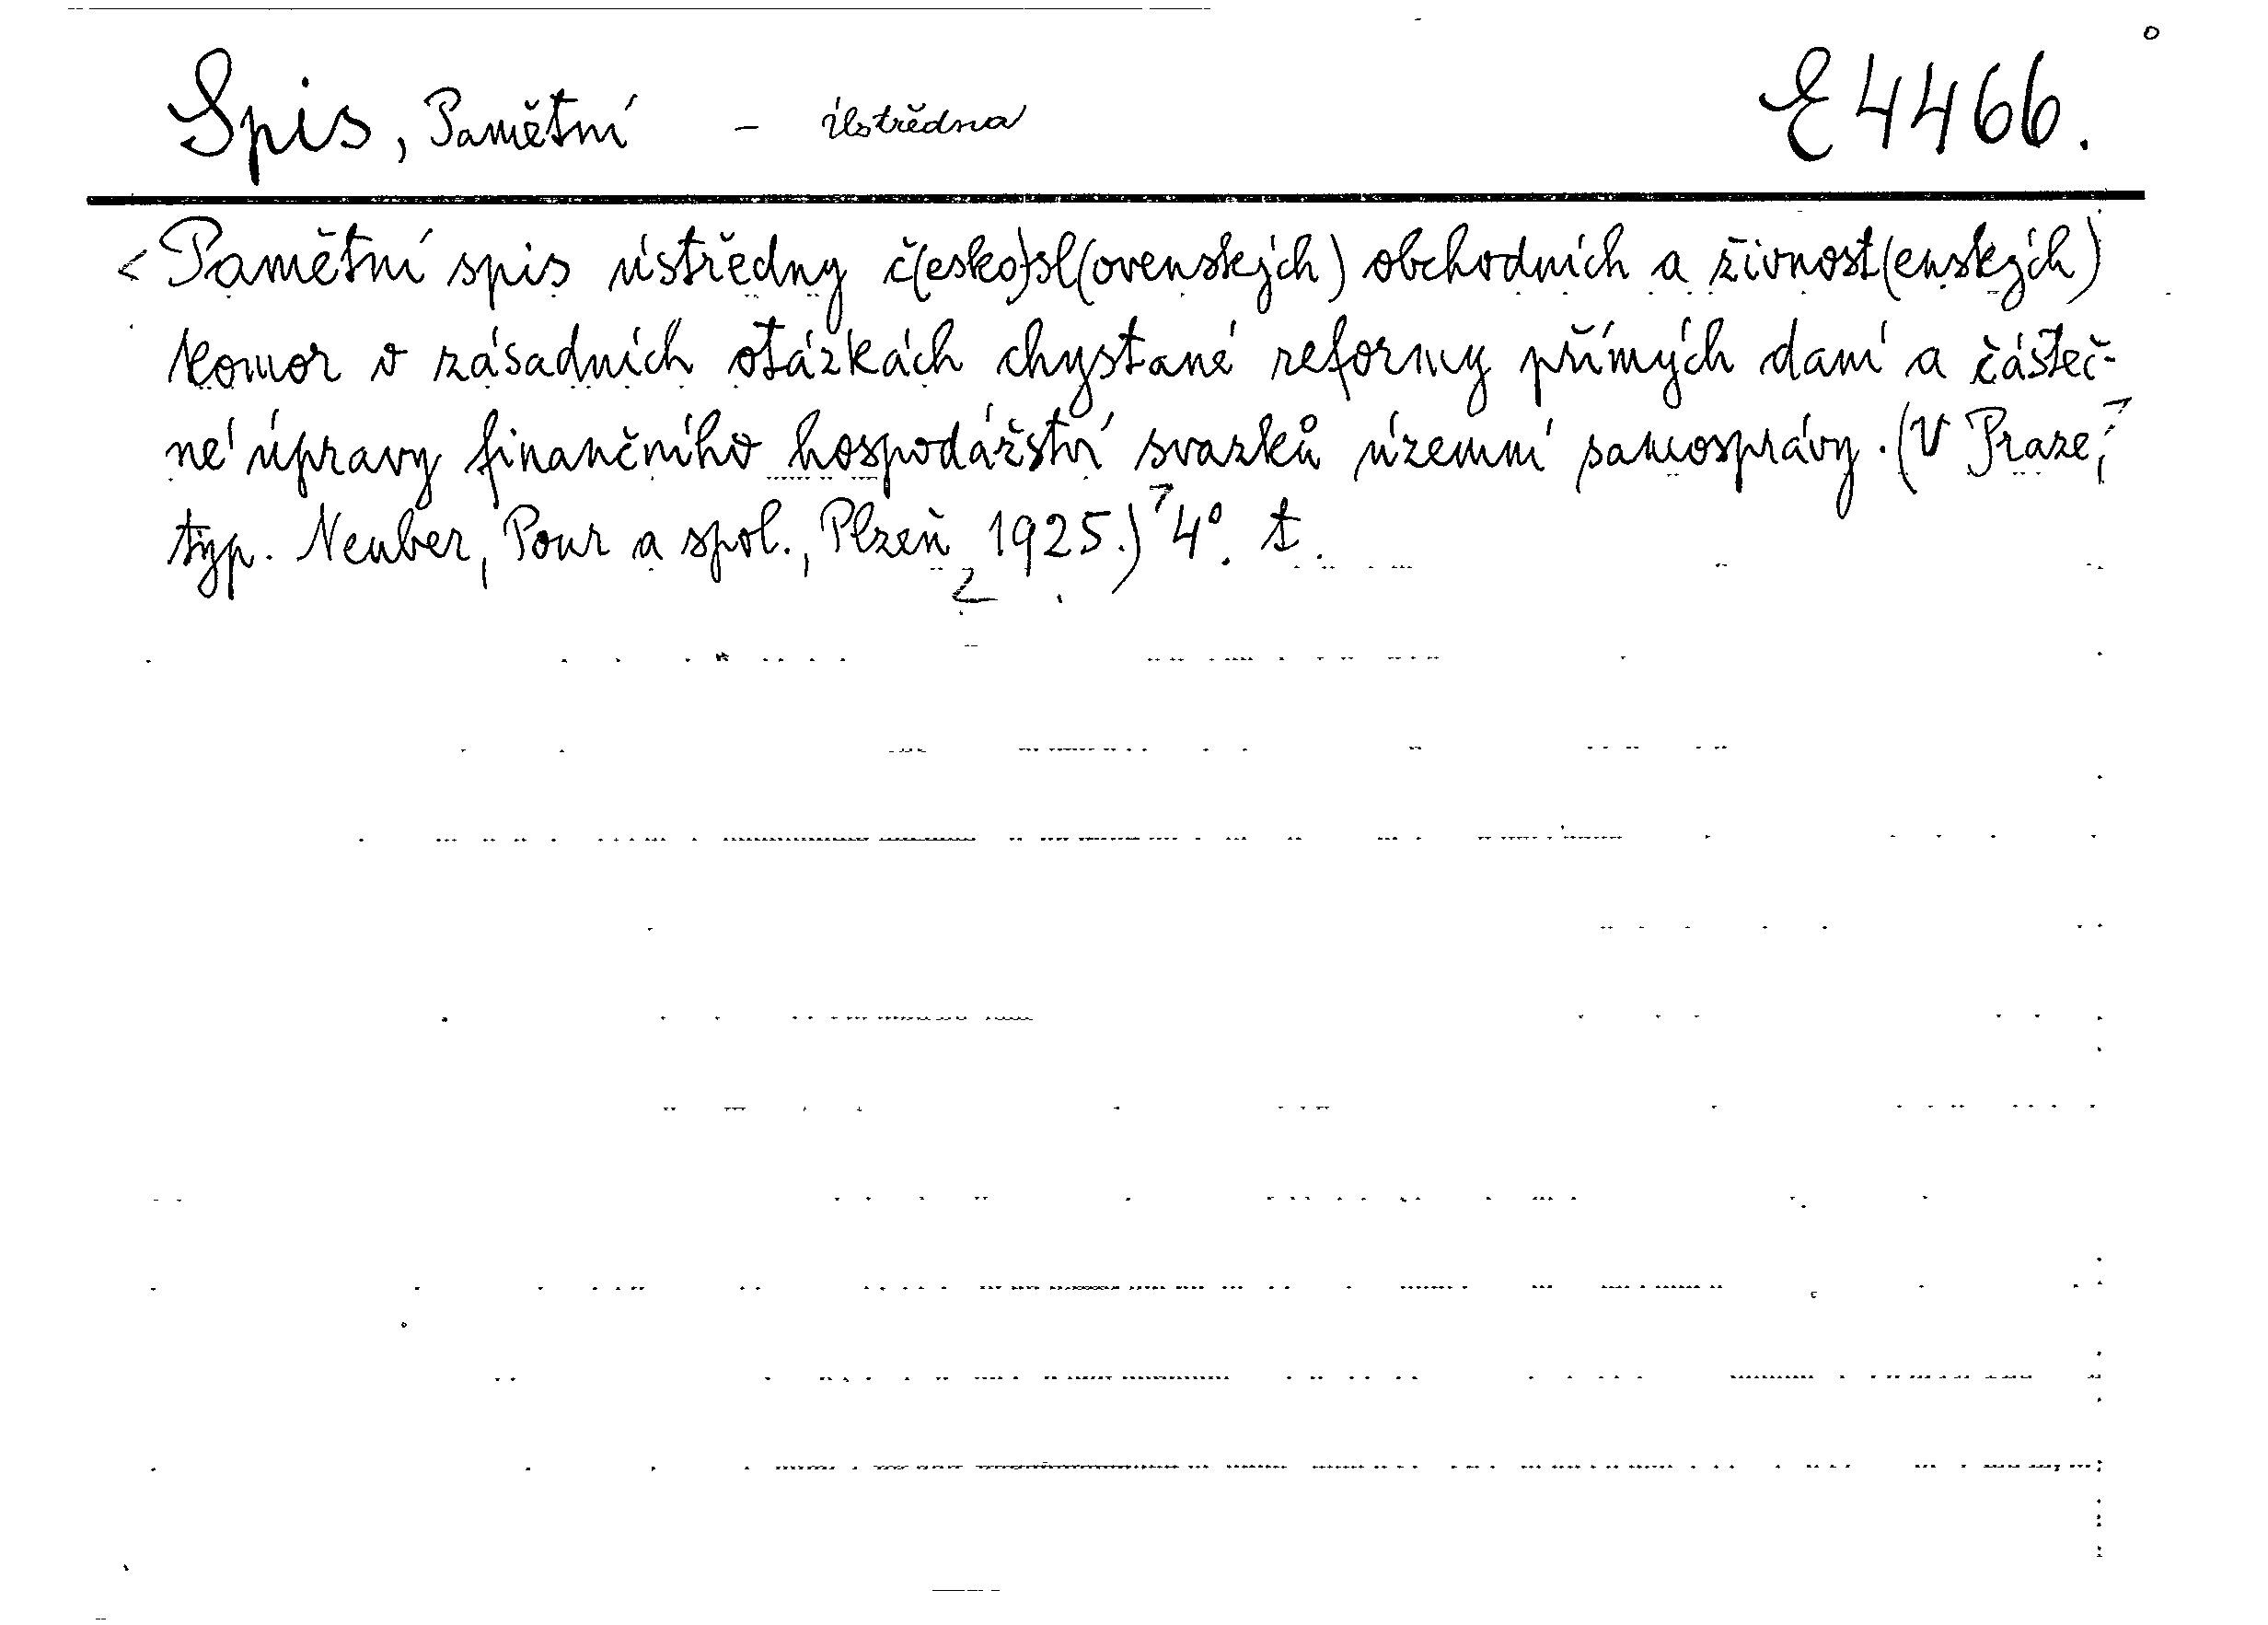 Spis, Pamětní – Ústředna E 4466.
Pamětní spis ústředny č(esko)sl(ovenských) obchodních a živnost(enských)
komor v zásadních otázkách chystané reformy přímých daní a částeč-
né úpravy finančního hospodářství svazků územní samosprávy. (V Praze,
typ. Neuber, Pour a spol., Plzeň 1925.) 4°. t.